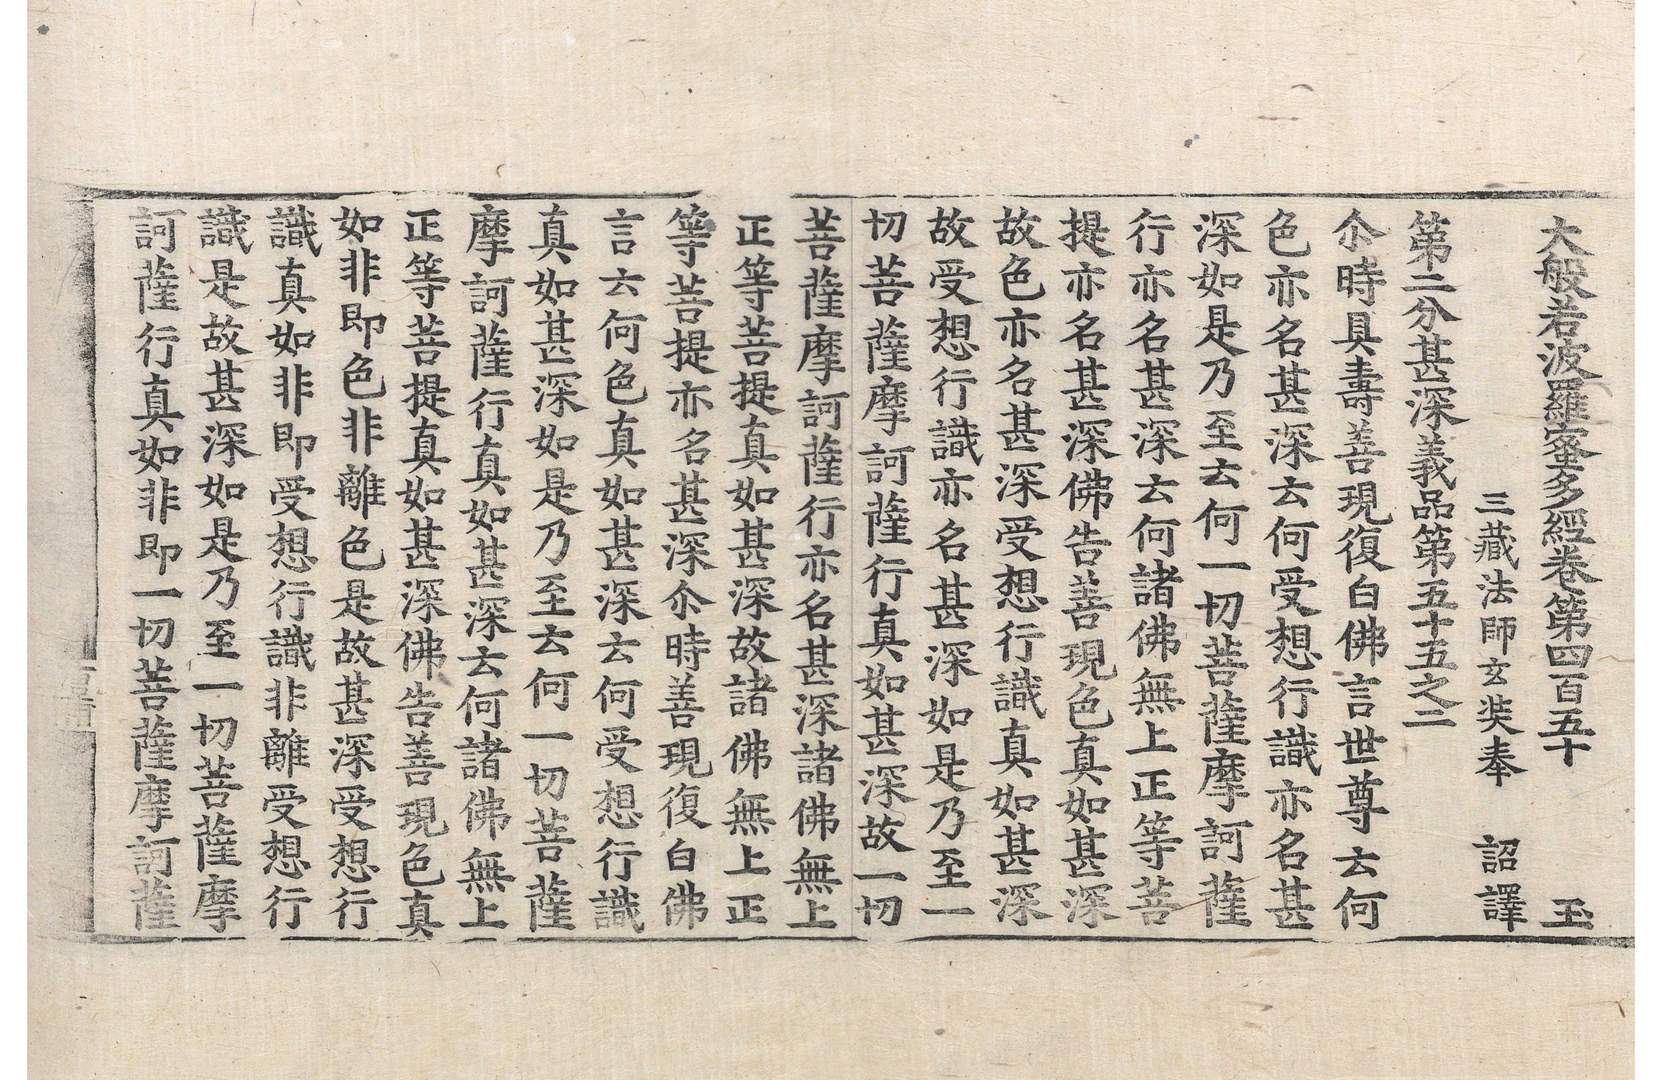 大般若波羅蜜多經卷第四百五十　玉
三藏法師玄奘奉　詔譯
第二分甚深義品第五十五之二
尒時具壽善現復白佛言世尊云何
色亦名甚深云何受想行識亦名甚
深如是乃至云何一切菩薩摩訶薩
行亦名甚深云何諸佛無上正等菩
提亦名甚深佛告善現色真如甚深
故色亦名甚深受想行識真如甚深
故受想行識亦名甚深如是乃至一
切菩薩摩訶薩行真如甚深故一切
菩薩摩訶薩行亦名甚深諸佛無上
正等菩提真如甚深故諸佛無上正
等菩提亦名甚深尒時善現復白佛
言云何色真如甚深云何受想行識
真如甚深如是乃至云何一切菩薩
摩訶薩行真如甚深云何諸佛無上
正等菩提真如甚深佛告善現色真
如非即色非離色是故甚深受想行
識真如非即受想行識非離受想行
識是故甚深如是乃至一切菩薩摩
訶薩行真如非即一切菩薩摩訶薩